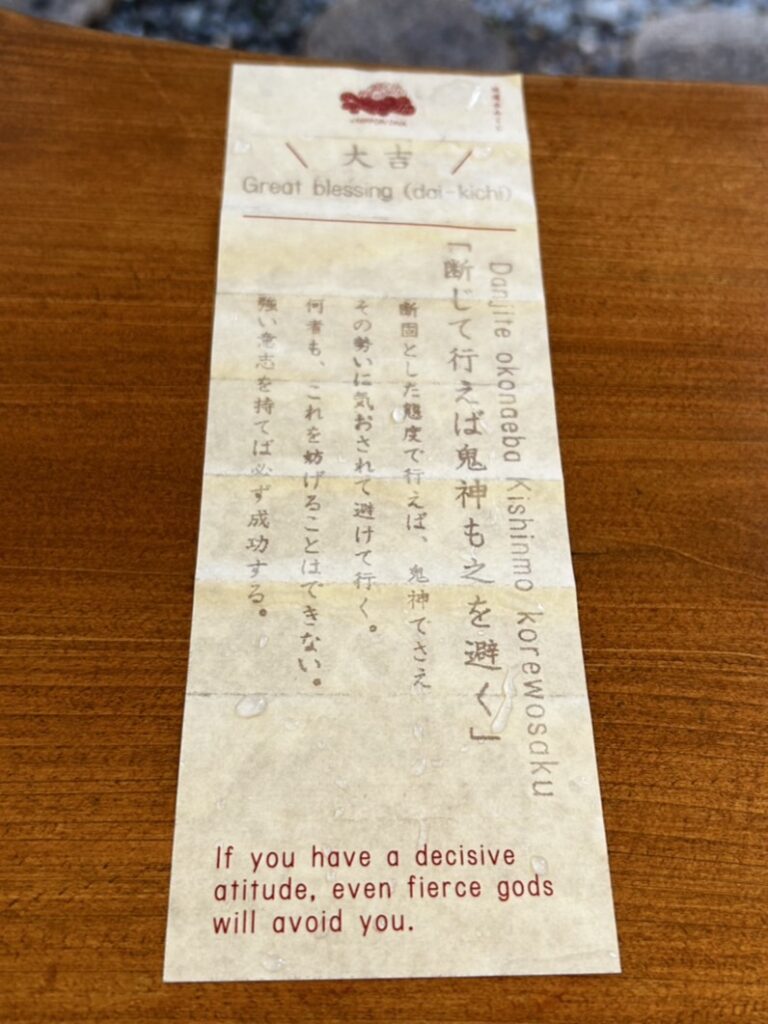 大吉
Great blessing (dai-kichi)
Danjite okonaeba Kishinmo korewosaku
「断じて行えば鬼神も之を避く」
断固とした態度で行えば、鬼神でさえ
その勢いに気おされて避けて行く。
何者も、これを妨げることはできない。
強い意志を持てば必ず成功する。
If you have a decisive
atitude, even fierce gods
will avoid you.